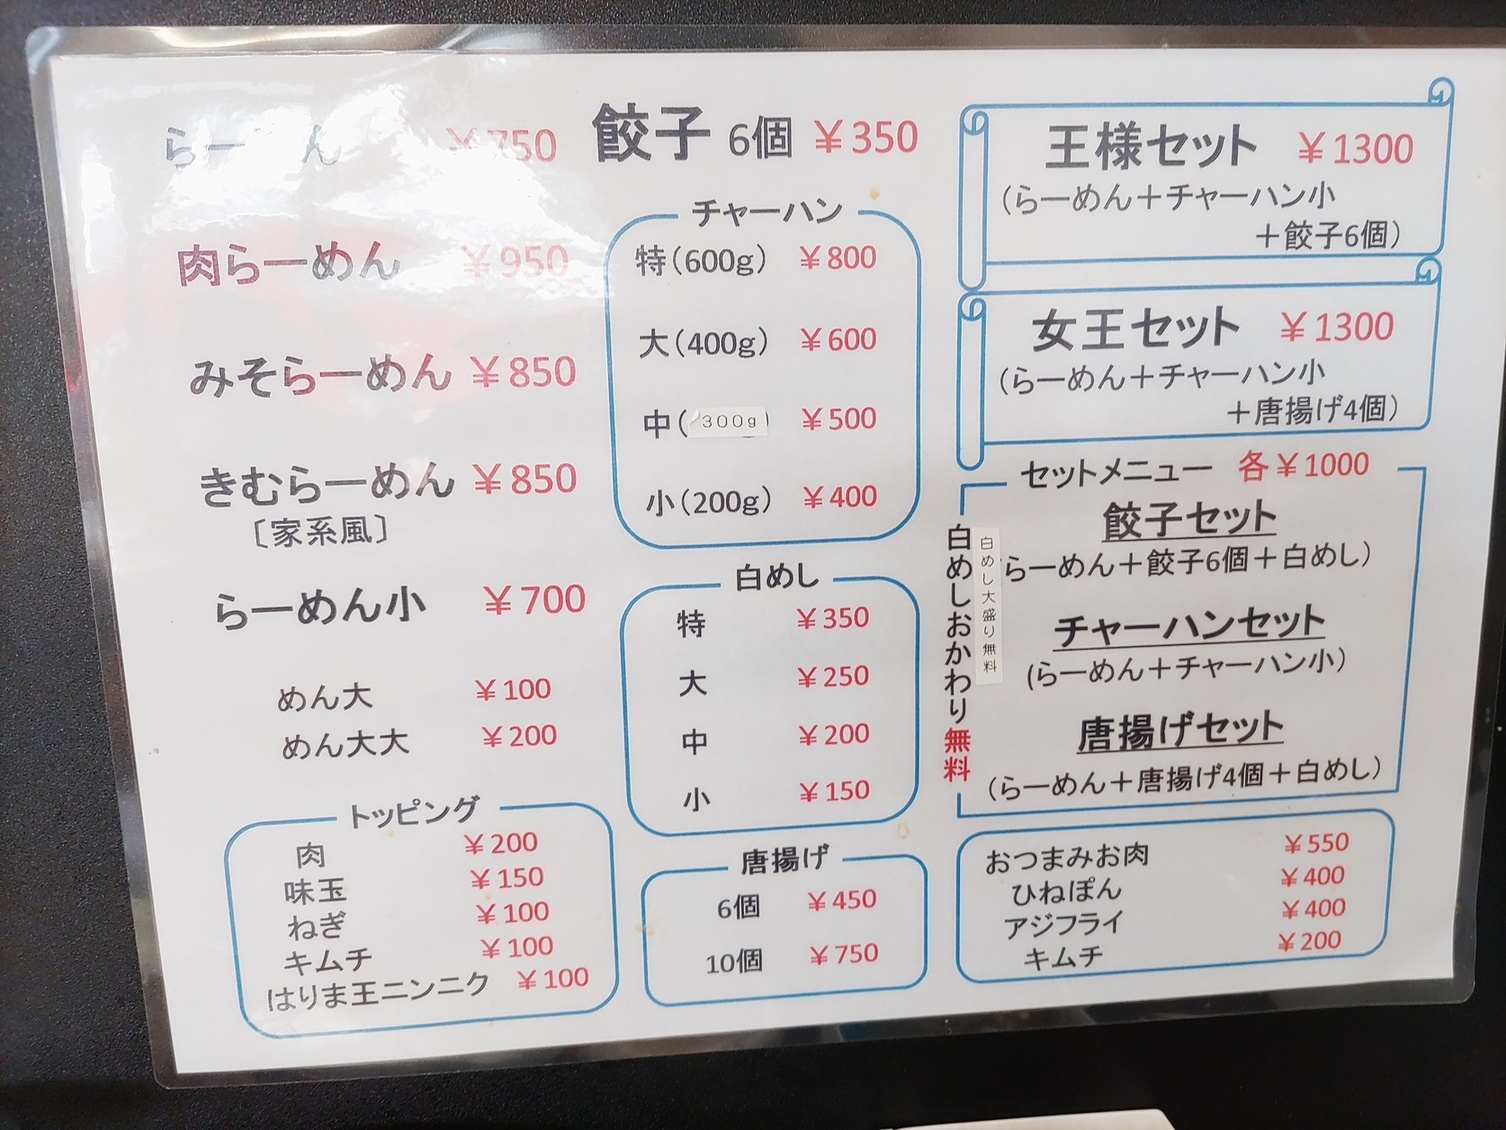 らーめん ￥750
肉らーめん ￥950
みそらーめん ￥850
きむらーめん ￥850
〔家系風〕
らーめん小 ￥700
めん大 ￥100
めん大大 ￥200
トッピング
肉 ￥200
味玉 ￥150
ねぎ ￥100
キムチ ￥100
はりま王ニンニク ￥100
餃子 6個 ￥350
チャーハン
特(600g) ￥800
大(400g) ￥600
中(300g) ￥500
小(200g) ￥400
白めし
特 ￥350
大 ￥250
中 ￥200
小 ￥150
唐揚げ
6個 ￥450
10個 ￥750
王様セット ￥1300
(らーめん＋チャーハン小
＋餃子6個)
女王セット ￥1300
(らーめん＋チャーハン小
＋唐揚げ4個)
セットメニュー 各￥1000
餃子セット
らーめん＋餃子6個＋白めし)
チャーハンセット
(らーめん＋チャーハン小)
唐揚げセット
(らーめん＋唐揚げ4個＋白めし)
白めしおかわり無料
白めし大盛り無料
おつまみお肉 ￥550
ひねぽん ￥400
アジフライ ￥400
キムチ ￥200